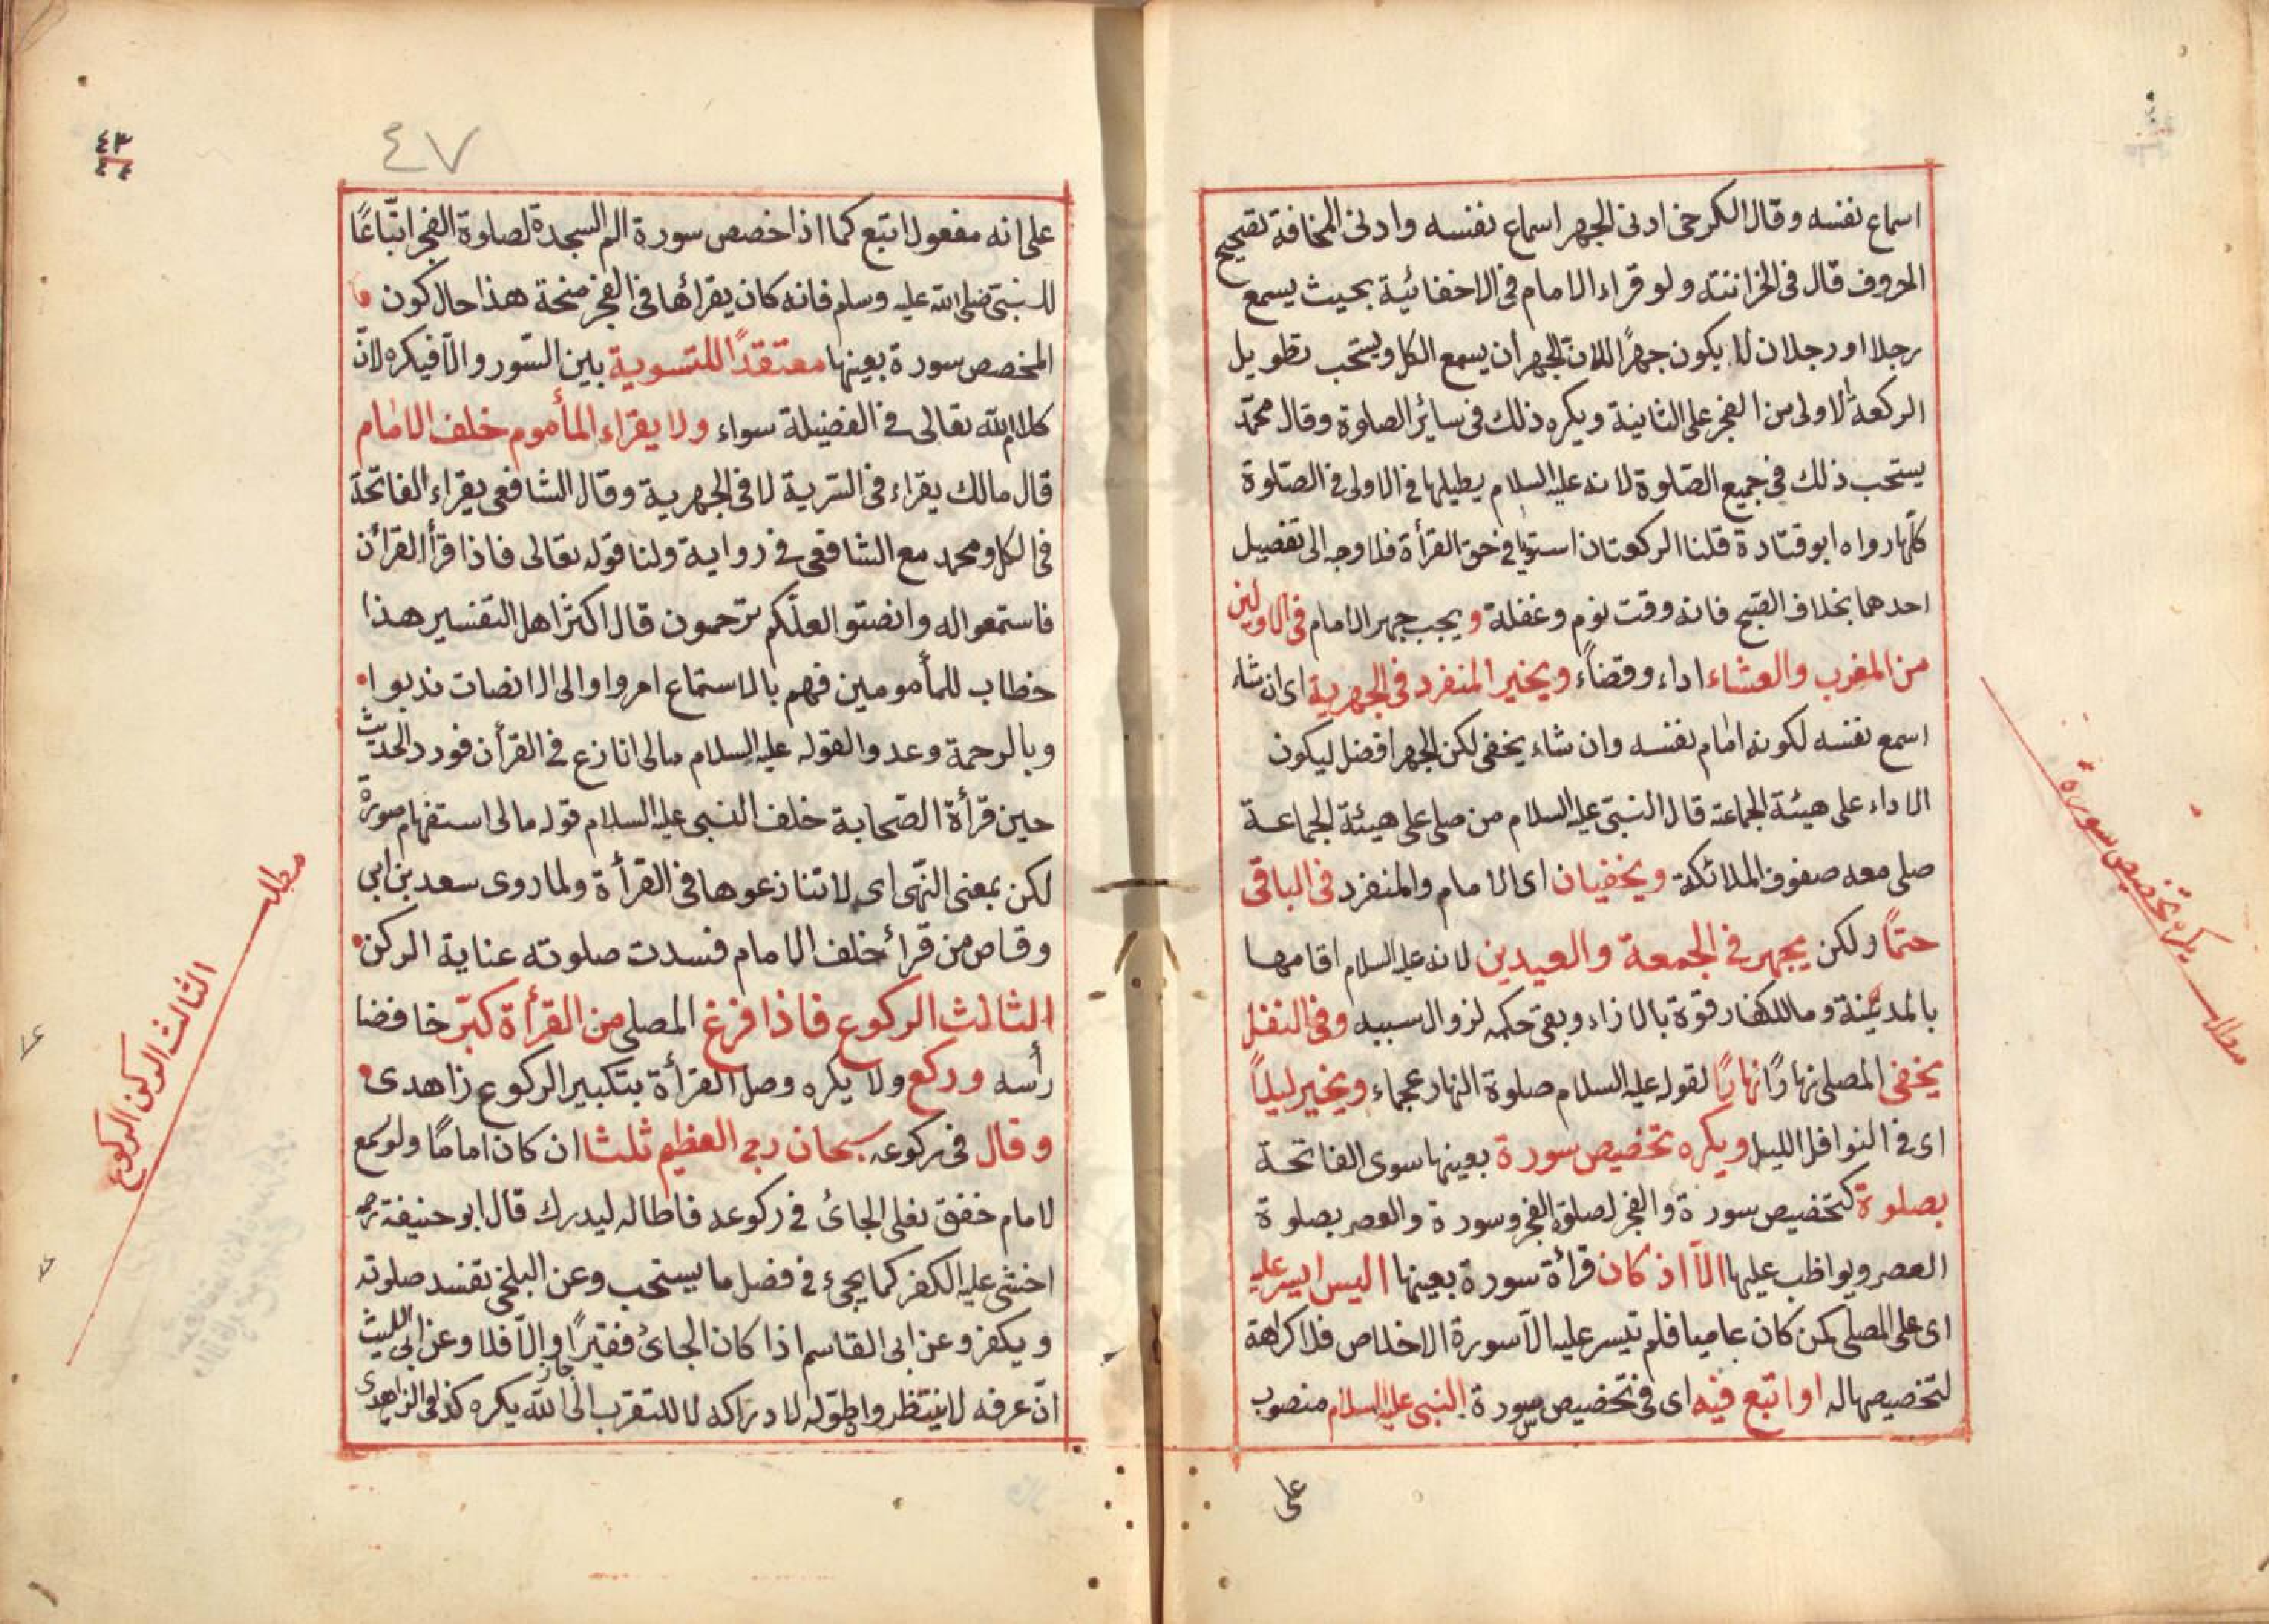 اسماع نفسه وقال الكرخى ادنى الجهر اسماع نفسه وادنى المخافة تصحيح
الحروف قال فى الخزانته ولو قراء الامام فى الاخفائية بحيث يسمع
رجلا اورجلان لا يكون جهرًا لانّ الجهر أن يسمع الكل ويستحب تطويل
الركعة الاولى من الفجر على الثانية ويكره ذلك فى سائر الصلوة وقال محمّد
يستحب ذلك فى جميع الصّلوة لانه عليه السلام يطيلها فى الاولى فى الصّلوة
كلّها رواه ابوقتادة قلنا الركعتان استويا فى حق القرأة فلا وجه الى تفضيل
احدهما بخلاف الصّبح فانه وقت نوم وغفلة ويجب جهر الامام فى الاولين
من المغرب والعشاء اداء وقضاءً ويخير المنفرد فى الجهرية اى ان شاء
اسمع نفسه لكونه امام نفسه وان شاء يخفى لكن الجهر افضل ليكون
الاداء على هيئة الجماعة قال النبىّ عليه السلام من صلى على هيئة الجماعة
صلى معه صفوف الملائكة ويخفيان اى الامام والمنفرد فى الباقى
حتمًا ولكن يجهر فى الجمعة والعيدين لانه عليه السلام اقامها
بالمدينة وما للكفار قوّة بالازاء وبقى حكمه لزوال سببه وفى النفل
يخفى المصلى نهارًا نهارًا لقوله عليه السلام صلوة النهار عجماء ويخير ليلًا
اى فى النوافل الليل ويكره تخصيص سورة بعينها سوى الفاتحة
بصلوة كتخصيص سورة والفجر لصلوة الفجر وسورة والعصر بصلوة
العصر ويواظب عليها الّا اذ كان قرأة سورة بعينها اليس ايسر عليه
اى على المصلى كمن كان عاميا فلم تيسر عليه الّا سورة الاخلاص فلا كراهة
لتخصيصها له او اتبع فيه اى فى تخصيص سورة النبى عليه السلام منصوب
على
مطلب يكره تخصيص سورة
٤٧
٤٣
٤٤
على انه مفعول اتبع كما اذا خصص سورة الم السجدة لصلوة الفجر اتّباعًا
للنبىّ صلى الله عليه وسلم فانه كان يقرائها فى الفجر صحة هذا حال كون
المخصص سورة بعينها معتقدًا للتسوية بين السّور والّا فيكره لانّ
كلام الله تعالى فى الفضيلة سواء ولا يقراء المأموم خلف الامام
قال مالك يقراء فى السّرية لا فى الجهرية وقال الشافعى يقراء الفاتحة
فى الكل ومحمد مع الشافعى فى رواية ولنا قوله تعالى فاذا قرأ القرأن
فاستمعوا له وانصتو العلّكم ترحمون قال اكثر اهل التفسير هذا
خطاب للمأمومين فهم بالاستماع امروا والى الانصات ندبوا
وبالرحمة وعدوا لقوله عليه السلام مالى انازع فى القرأن فورد الحديث
حين قرأة الصّحابة خلف النبى عليه السلام قوله مالى استفهام صورة
لكن بمعنى النّهى اى لا تنازعوها فى القرأة ولما روى سعد بن ابى
وقاص من قرأ خلف الامام فسدت صلوته عناية الركن
الثالث الركوع فاذا فرغ المصلى من القرأة كبّر خافضا
رأسه وركع ولا يكره وصل القرأة بتكبير الركوع زاهدى
وقال فى ركوعه سبحان ربى العظيم ثلثا ان كان اماما ولو سمع
لامام خفق نعلى الجائ فى ركوعه فاطاله ليدرك قال ابو حنيفة رح
اخشى عليه الكفر كما يجئ فى فضل ما يستحب وعن البلخى تفسد صلوته
ويكفر وعن ابى القاسم اذا كان الجائ فقيرًا جاز والّا فلا وعن ابى الليث
انّ عرفه لا ينتظر واطوله لادراكه لا للتقرب الى الله يكره كذا فى الزاهدى
مطلب الثالث الركن الركوع